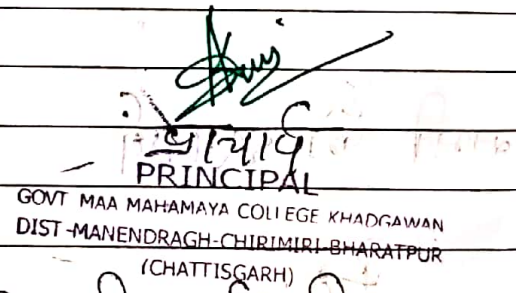 प्राचार्य
PRINCIPAL
GOVT MAA MAHAMAYA COLLEGE KHADGAWAN
DIST-MANENDRAGH-CHIRIMIRI-BHARATPUR
(CHATTISGARH)